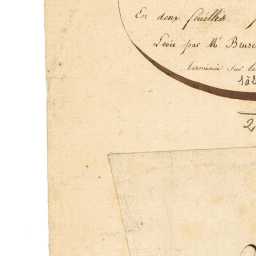 En deux feuilles
Levée par Mr Brus
terminée sur le
182
2